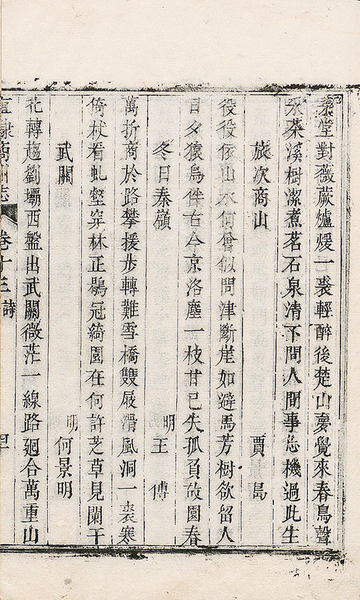 茅堂對薇蕨爐煖一裘輕醉後楚山夢覺來春鳥聲
采茶溪樹潔煮茗石泉清不問人間事忘機過此生
旅次商山 賈島
役役依山水何曾似問津斷崖如避馬芳樹欲留人
日夕猿鳥伴古今京洛塵一枝甘已失孤負故園春
冬日秦嶺 明王傅
萬折商於路攀援步轉難雪橋雙屐滑風洞一裘寒
倚杖看虬壑穿林正鶡冠綺園在何許芝草見闌干
武關 明何景明
北轉趨劉壩西盤出武關微茫一線路廻合萬重山
直隸商州志 卷十三 詩